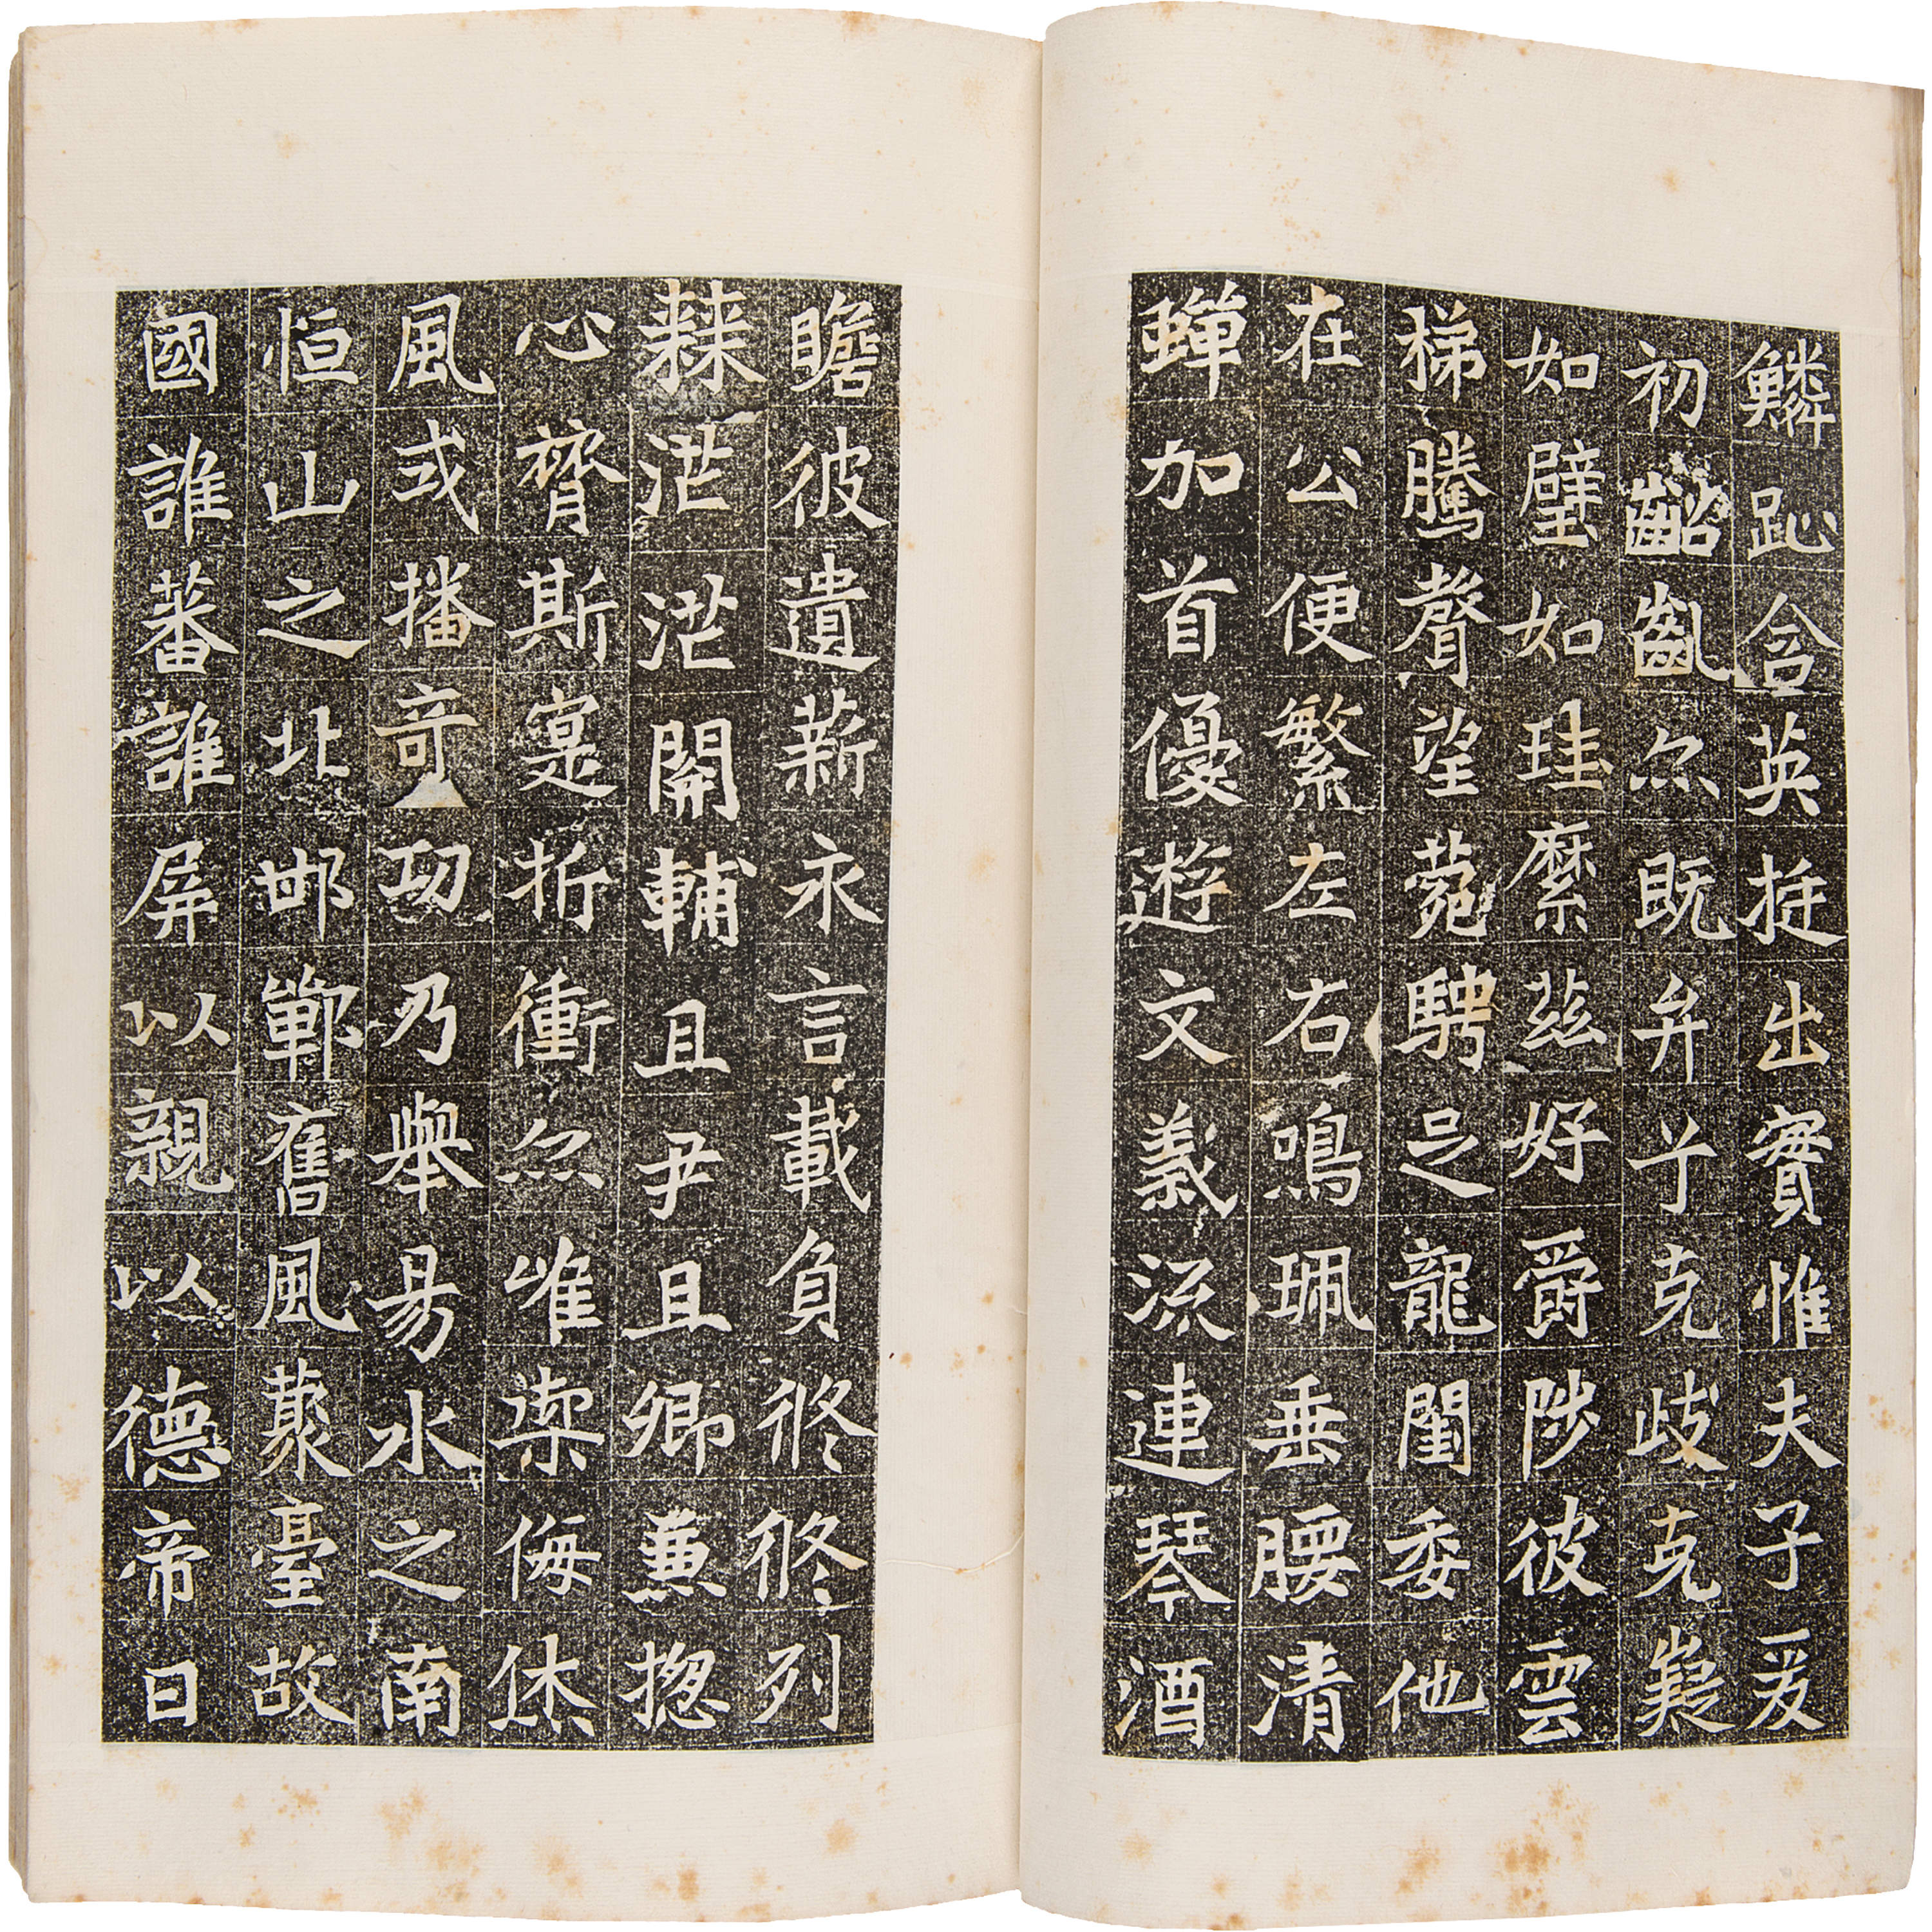 鱗趾含英挺出實惟夫子爰
初齠齔尒既弁丫克歧克嶷
如璧如珪縻茲好爵陟彼雲
梯騰聲望菀騁足龍閨委他
在公便繁左右鳴珮垂腰清
蟬加首優遊文義流連琴酒
瞻彼遺薪永言載負俢俢列
棘茫茫開輔且尹且卿兼揔
心膂斯寔折衝尒唯禦侮休
風或播奇功乃舉易水之南
恒山之北邯鄲舊風藂臺故
國誰蕃誰屏以親以德帝曰